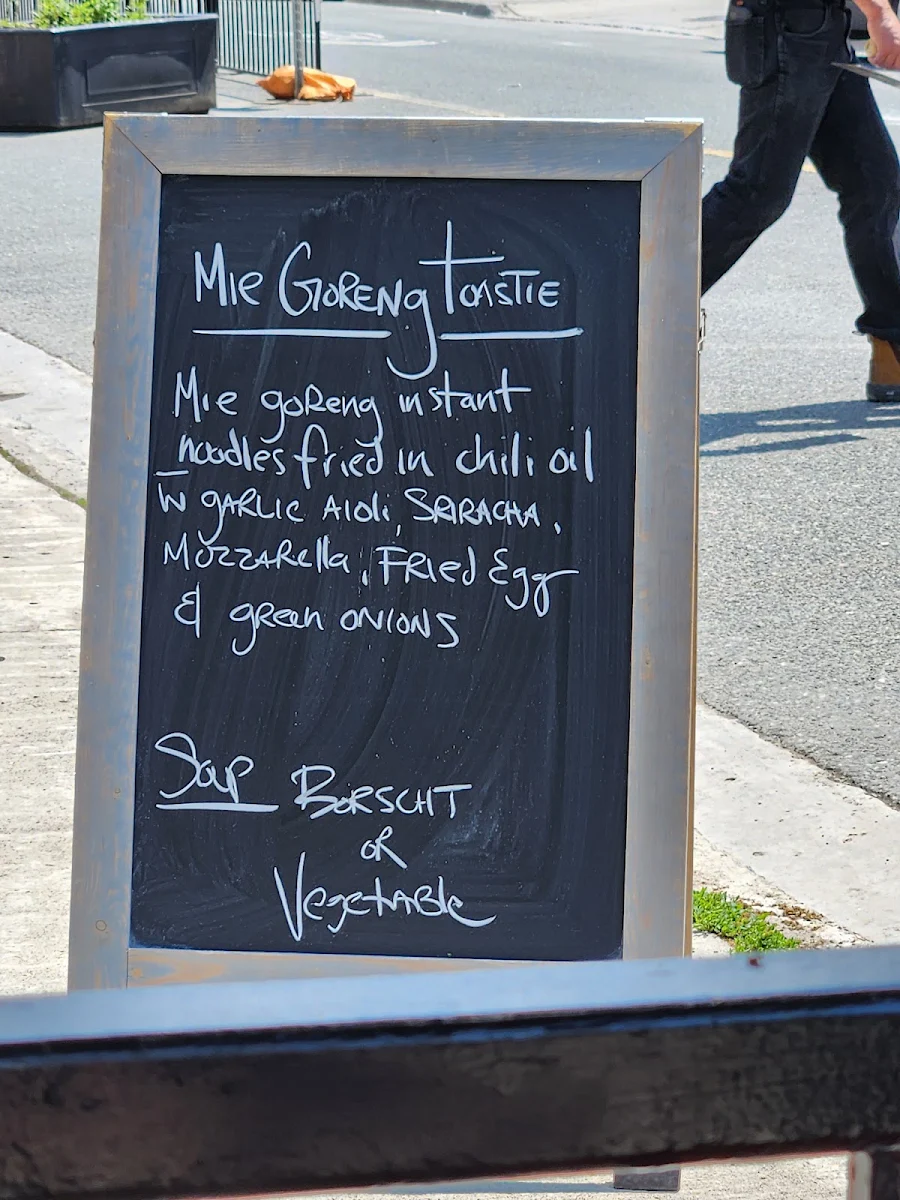 Mie Goreng Toastie
Mie goreng instant
noodles fried in chili oil
w garlic aioli, Sriracha,
Mozzarella, Fried Egg
& green onions
Soup Borscht
or
Vegetable